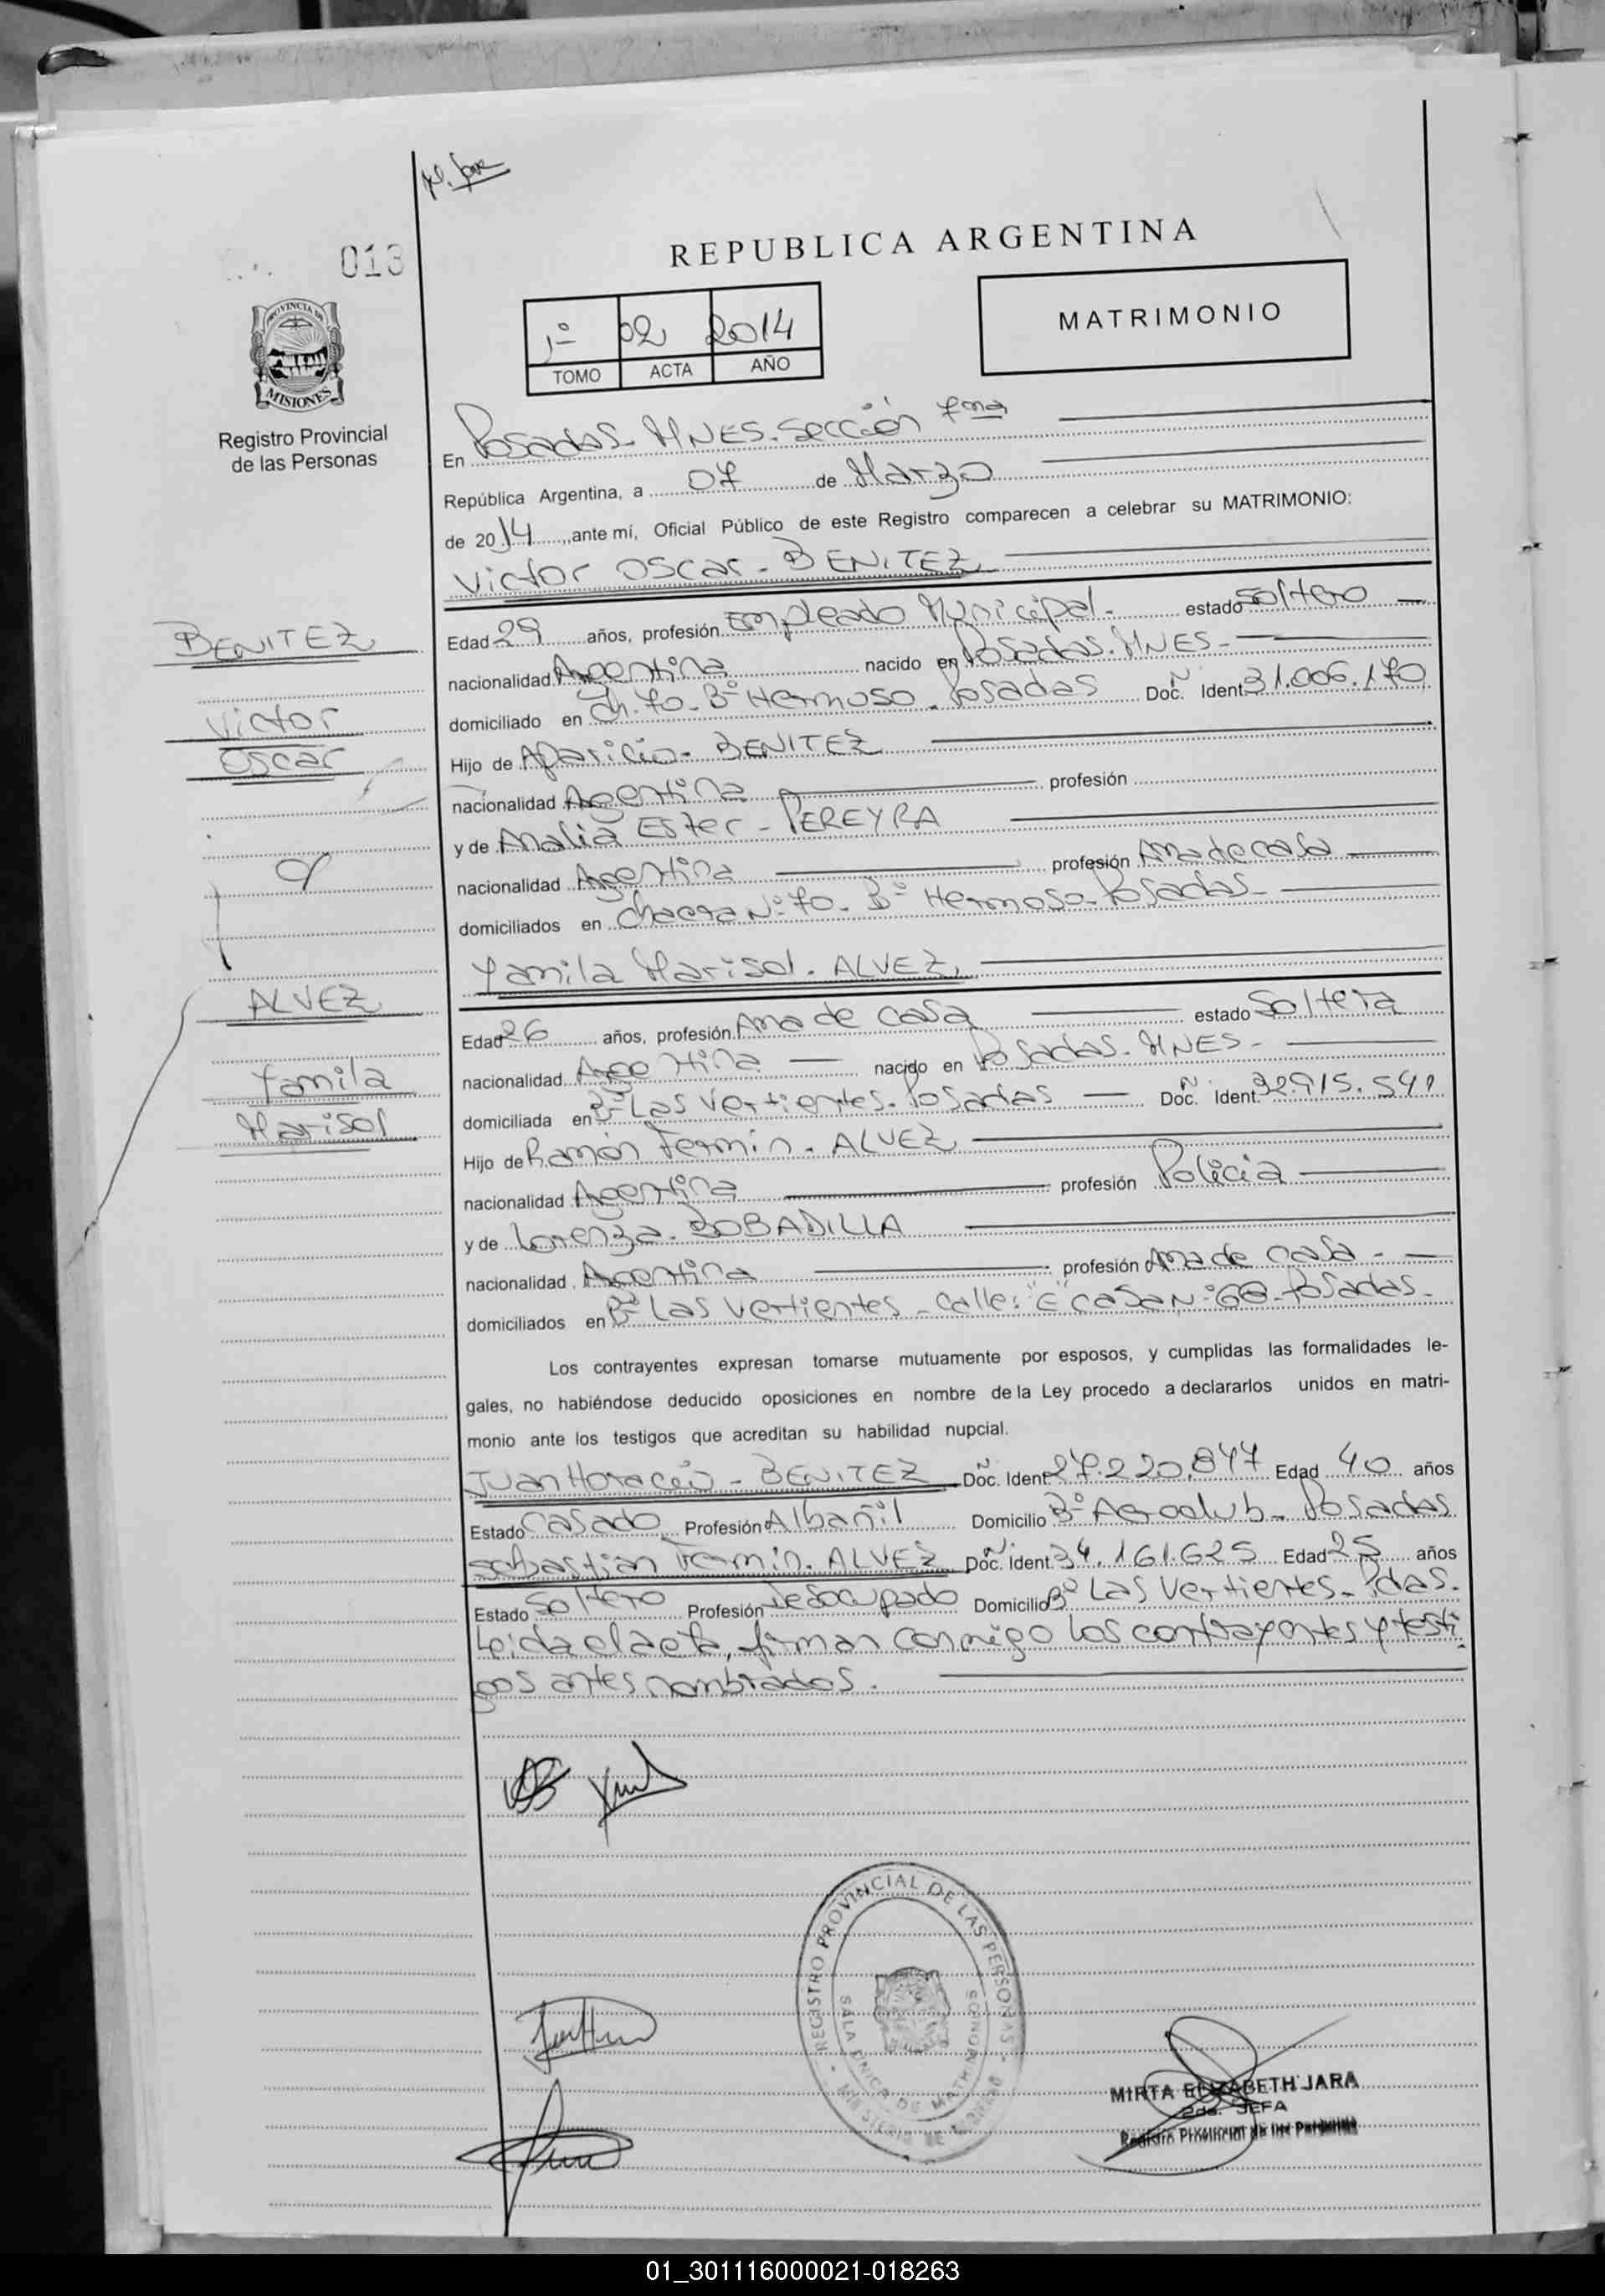 013
REPUBLICA ARGENTINA
MATRIMONIO
1º 02 2014
TOMO ACTA AÑO
PROVINCIA DE
MISIONES
Registro Provincial
de las Personas
En Posadas-MNES-Sección 7ma
República Argentina, a 07 de Marzo
de 2014, ante mí, Oficial Público de este Registro comparecen a celebrar su MATRIMONIO:
Victor Oscar - BENITEZ
BENITEZ
Victor
Oscar
Edad 29 años, profesión Empleado Municipal. estado Soltero
nacionalidad Argentina nacido en Posadas. MNES-
domiciliado en Ch. 70. Bº Hermoso. Posadas Doc. Ident. 31.006.170
Hijo de Aparicio- BENITEZ
nacionalidad Argentina profesión
y de Analia Ester - PEREYRA
nacionalidad Argentina profesión Ama de casa
domiciliados en Chacra Nº 70. Bº Hermoso-Posadas-
Yamila Marisol. ALVEZ
ALVEZ
Yamila
Marisol
Edad 26 años, profesión Ama de casa estado Soltera
nacionalidad Argentina nacido en Posadas. MNES-
domiciliada en Bº Las Vertientes. Posadas Doc. Ident. 32.915.541
Hijo de Ramón Fermin. ALVEZ
nacionalidad Argentina profesión Policia
y de Lorenza. BOBADILLA
nacionalidad Argentina profesión Ama de casa -
domiciliados en Bº Las Vertientes - calle: "E" casa Nº 68-Posadas-
Los contrayentes expresan tomarse mutuamente por esposos, y cumplidas las formalidades le-
gales, no habiéndose deducido oposiciones en nombre de la Ley procedo a declararlos unidos en matri-
monio ante los testigos que acreditan su habilidad nupcial.
Juan Horacio - BENITEZ Doc. Ident 27.220.847 Edad 40 años
Estado Casado Profesión Albañil Domicilio Bº Aeroclub. Posadas
Sebastian Fermin. ALVEZ Doc. Ident. 34.161.625 Edad 25 años
Estado Soltero Profesión Desocupado Domicilio Bº Las Vertientes- Pdas.
Leida el acta, firman conmigo los contrayentes y testi
gos antes nombrados.
REGISTRO PROVINCIAL DE LAS PERSONAS
SALA UNICA DE MATRIMONIOS
MINISTERIO DE GOBIERNO
MIRTA ELIZABETH JARA
2da. JEFA
Registro Provincial de las Personas
01_301116000021-018263